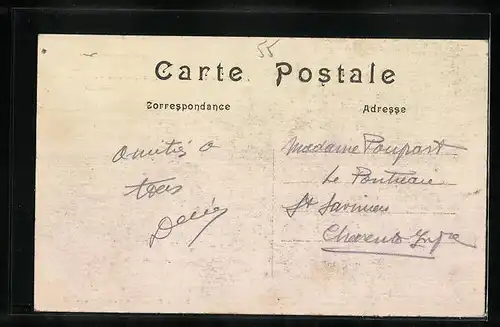 55
Carte Postale
Correspondance
Adresse
amitiés a
tous
Madame Poupart
Le
St Savinien
Charente Infre